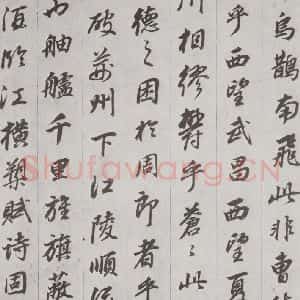 烏鵲南飛此非曹
乎西望武昌西望夏
川相繆鬱乎蒼〻此
德之困於周郎者乎
破荊州下江陵順流
也舳艫千里旌旗蔽
酒臨江橫槊賦詩固
Shufawang.CN